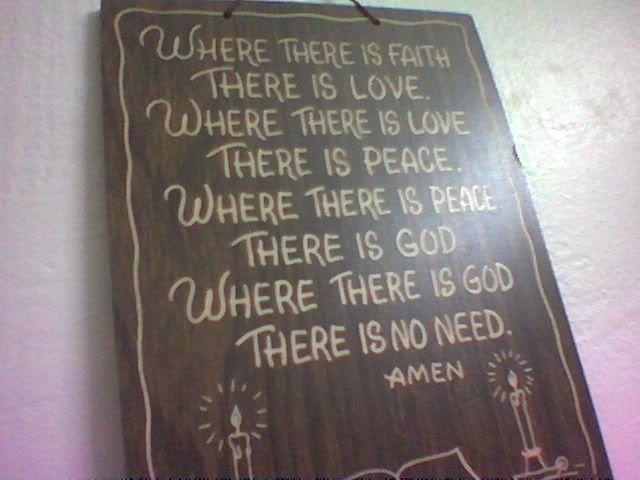 WHERE THERE IS FAITH
THERE IS LOVE.
WHERE THERE IS LOVE
THERE IS PEACE.
WHERE THERE IS PEACE
THERE IS GOD
WHERE THERE IS GOD
THERE IS NO NEED.
AMEN